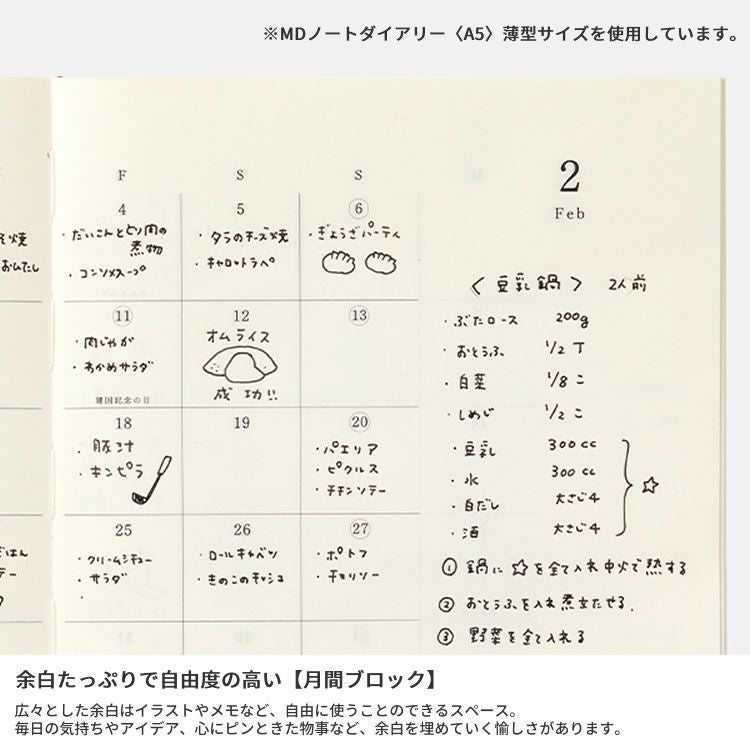 ※MDノートダイアリー〈A5〉薄型サイズを使用しています。
F
S
S
2
Feb
4
・だいこんとひき肉の
煮物
・コンソメスープ
5
・タラのチーズ焼
・キャロットラペ
6
・ぎょうざパーティ
11
・肉じゃが
・わかめサラダ
建国記念の日
12
オムライス
成功!!
13
18
・豚汁
・キンピラ
19
20
・パエリア
・ピクルス
・チキンソテー
25
・クリームシチュー
・サラダ
・
26
・ロールキャベツ
・きのこのキッシュ
27
・ポトフ
・チョリソー
〈豆乳鍋〉 2人前
・ぶたロース 200g
・おとうふ 1/2 丁
・白菜 1/8 こ
・しめじ 1/2 こ
・豆乳 300cc
・水 300cc
・白だし 大さじ4
・酒 大さじ4
☆
① 鍋に☆を全て入れ中火で熱する
② おとうふを入れ煮立たせる.
③ 野菜を全て入れる
余白たっぷりで自由度の高い【月間ブロック】
広々とした余白はイラストやメモなど、自由に使うことのできるスペース。
毎日の気持ちやアイデア、心にピンときた物事など、余白を埋めていく愉しさがあります。